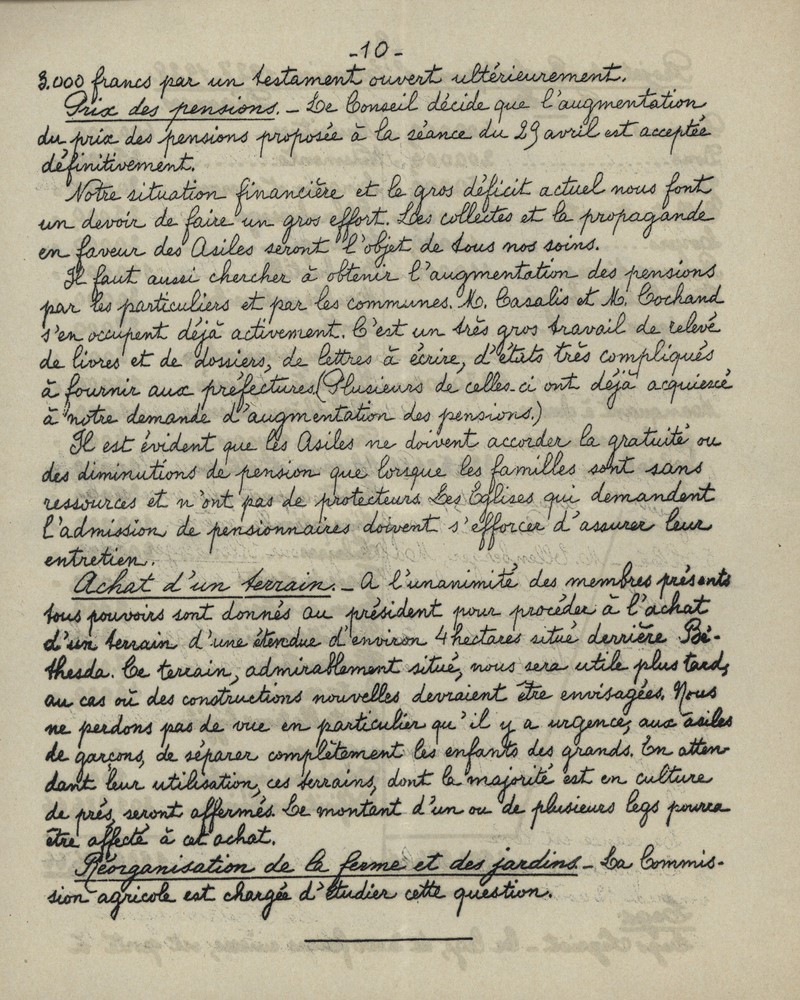 -10-
3.000 francs par un testament ouvert ultérieurement.
Prix des pensions. _ Le Conseil décide que l'augmentation
du prix des pensions proposée à la séance du 29 avril est acceptée
définitivement.
Notre situation financière et le gros déficit actuel nous font
un devoir de faire un gros effort. Les collectes et la propagande
en faveur des Asiles seront l'objet de tous nos soins.
Il faut aussi chercher à obtenir l'augmentation des pensions
par les particuliers et par les communes. M. Casalis et M. Cochand
s'en occupent déjà activement. C'est un très gros travail de relevé
de livres et de dossiers, de lettres à écrire, d'états très compliqués
à fournir aux préfectures. (Plusieurs de celles-ci ont déjà acquiescé
à notre demande d'augmentation des pensions.)
Il est évident que les Asiles ne doivent accorder la gratuité ou
des diminutions de pension que lorsque les familles sont sans
ressources et n'ont pas de protecteurs. Les Eglises qui demandent
l'admission de pensionnaires doivent s'efforcer d'assurer leur
entretien.
Achat d'un terrain. _ A l'unanimité des membres présents
tous pouvoirs sont donnés au président pour procéder à l'achat
d'un terrain d'une étendue d'environ 4 hectares situé derrière Bé-
thesda. Ce terrain, admirablement situé, nous sera utile plus tard,
au cas où des constructions nouvelles devraient être envisagées. Nous
ne perdons pas de vue en particulier qu'il y a urgence, aux asiles
de garçons, de séparer complètement les enfants des grands. En atten-
dant leur utilisation, ces terrains, dont la majorité est en culture
de prés, seront affermés. Le montant d'un ou de plusieurs legs pourra
être affecté à cet achat.
Réorganisation de la ferme et des jardins _ La Commis-
sion agricole est chargée d'étudier cette question.